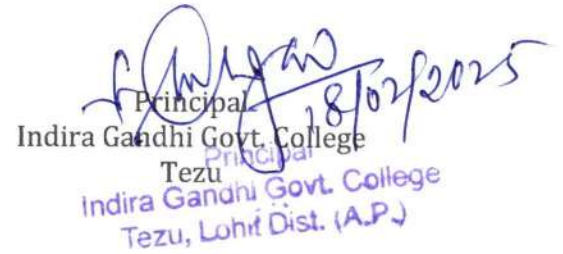 18/02/2025
Principal
Indira Gandhi Govt. College
Tezu
Principal
Indira Gandhi Govt. College
Tezu, Lohit Dist. (A.P.)